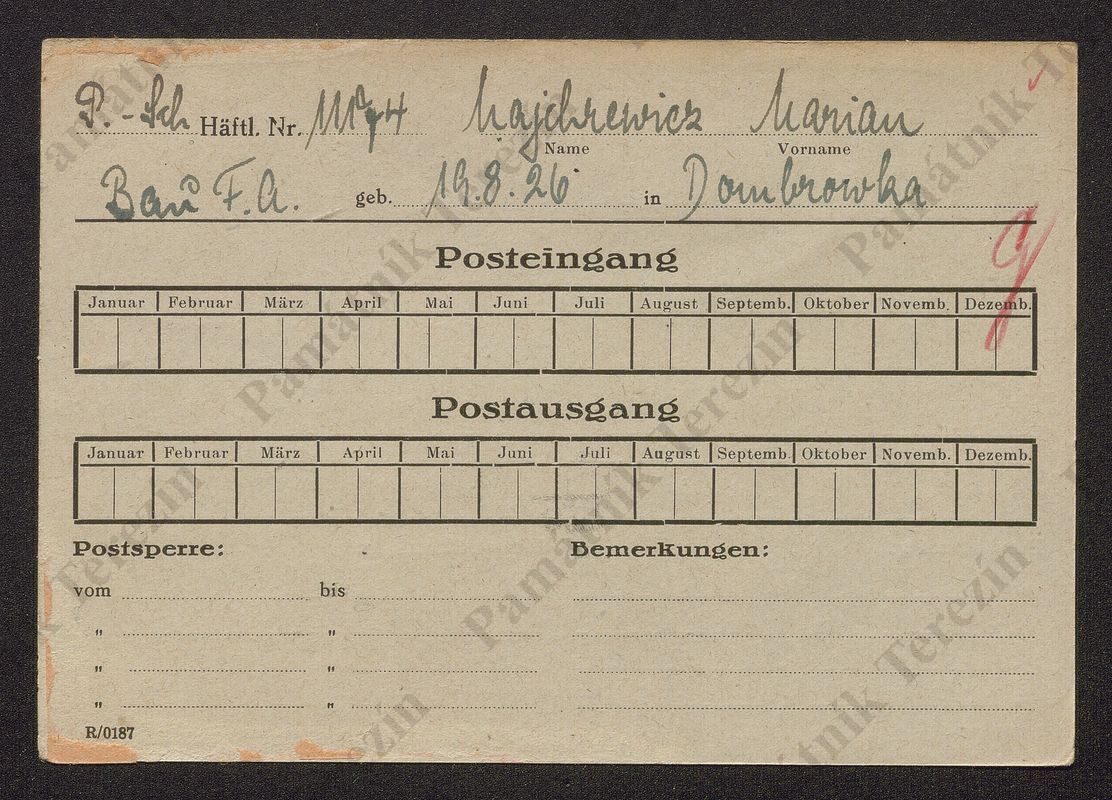 P. - Sch Häftl. Nr. Majchrewicz Marian
Name Vorname
Bau F. A. geb. 19.8.26 in Dombrowka
Posteingang
Januar Februar März April Mai Juni Juli August Septemb. Oktober Novemb. Dezemb.
Postausgang
Januar Februar März April Mai Juni Juli August Septemb. Oktober Novemb. Dezemb.
Postsperre: Bemerkungen:
vom bis
" "
" "
" "
R/0187
Památník Terezín